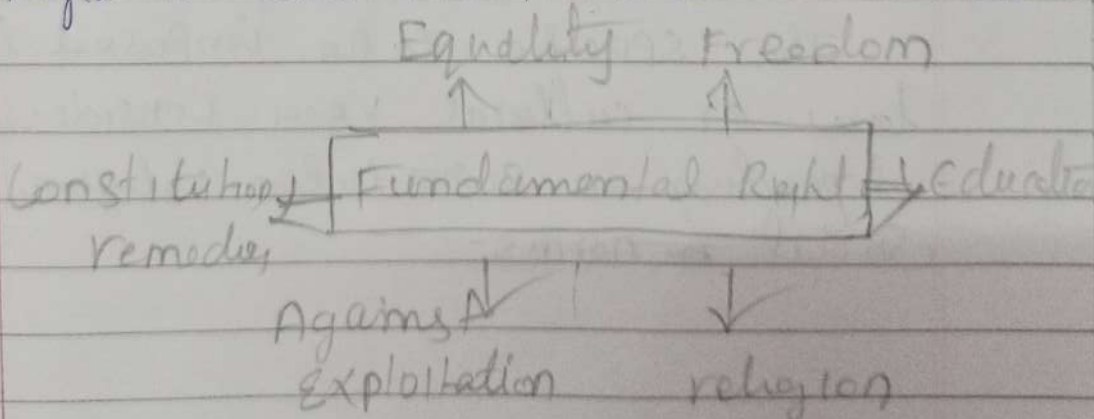 Equality Freedom
Constitutional Fundamental Right Education
remedies
Against
Exploitation religion